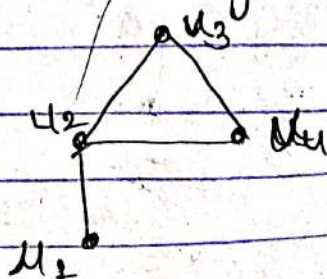 u3
u2
u4
u1